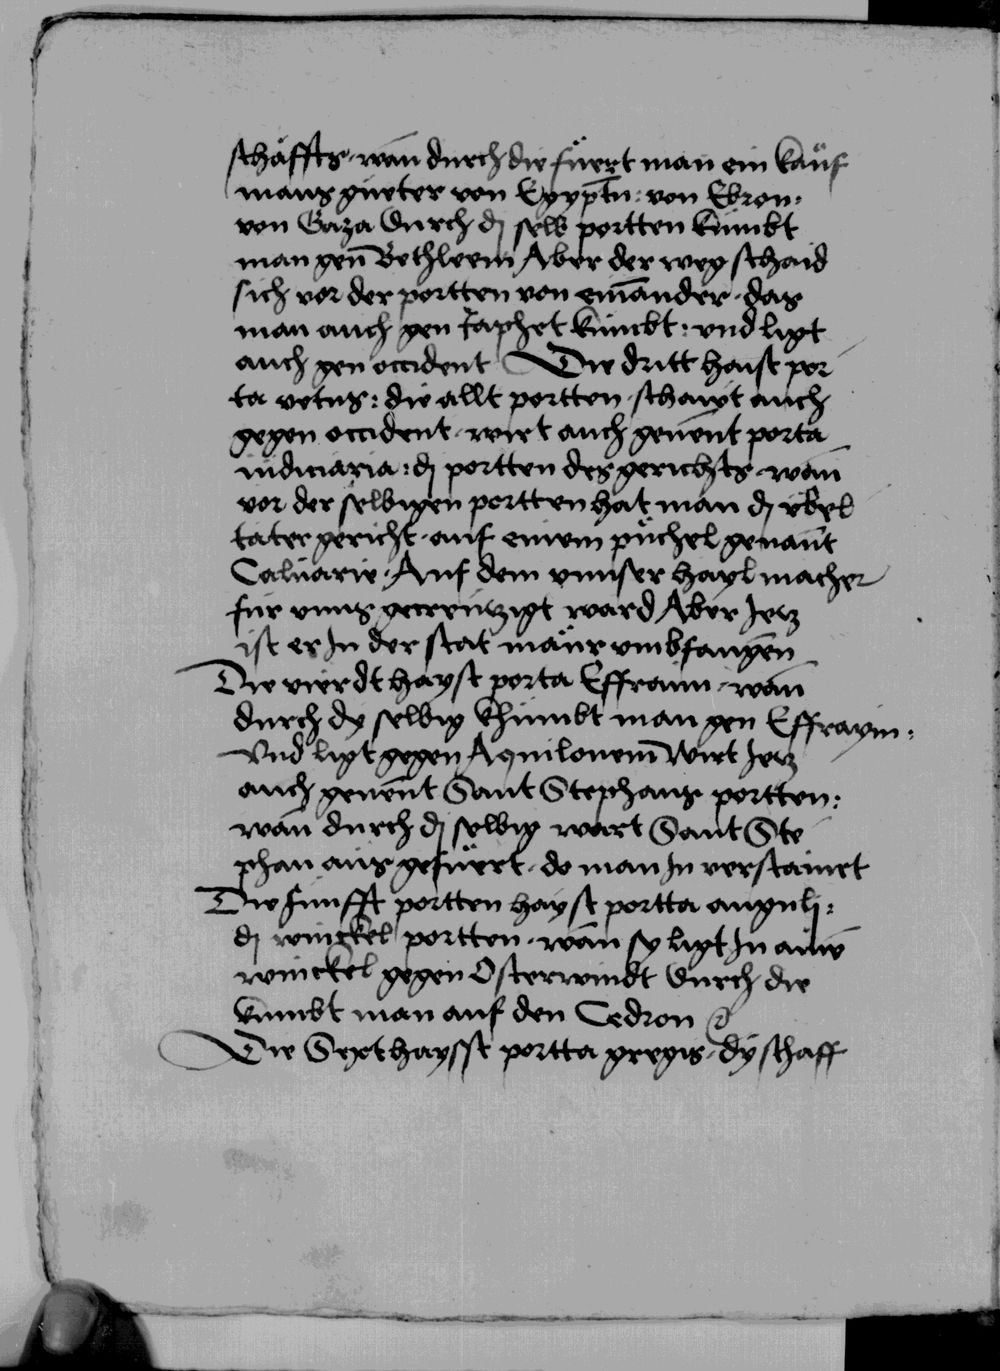 schäffts · wan durch die füert man ein kauf
mans güeter von Egyptn : von Ebron ·
von Gaza Durch dj selb portten kumbt
man gen Bethleem Aber der weg schaid
sich vor der portten von einander · das
man auch gen Japhet kumbt : vnd ligt
auch gen occident Die dritt haist por
ta vetus : die allt portten · schawt auch
gegen occident · wirt auch genent porta
iudiciaria : dj portten des gerichts · wan
vor der selbigen portten hat man dj vbel
täter gericht · auf einem püchel genant
Caluarie · Auf dem vnnser hayl macher
für vnns gecreutzigt ward Aber Jetz
ist er In der stat maur vmbfangen
Die vierdt hayst porta Effraim · wan
durch dy selbig khumbt man gen Effraym :
Vnd ligt gegen Aquilonem Wirt Jetz
auch genent Sant Stephans portten :
wan durch dj selbig wart Sant Ste
phan aus gefüert · do man In verstainet
Die funfft portten hayst portta anguli :
dj winckel portten · wan sy ligt In ainem
winckel gegen Osterwindt Durch die
kumbt man auf den Cedron
Die Sext haysst portta gregis · dy schaff